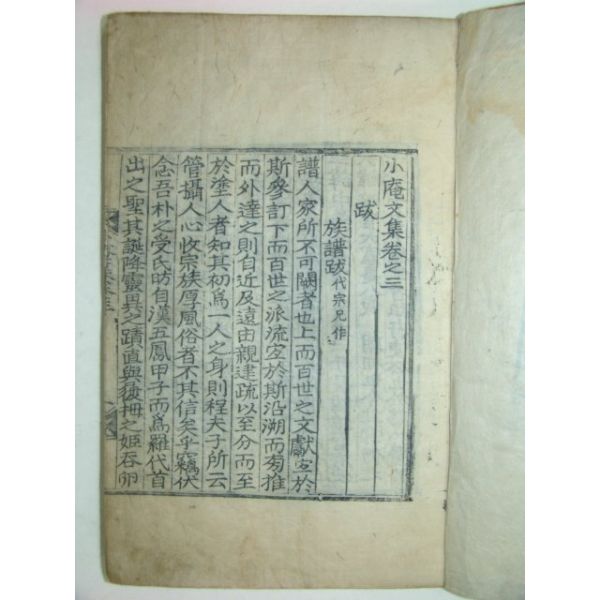 小庵文集卷之三
跋
族譜跋 代宗兄作
譜人家所不可闕者也上而百世之文獻宜於
斯參訂下而百世之派流宜於斯沿溯而旁推
而外達之則自近及遠由親逮疏以至分而至
於塗人者知其初爲一人之身則程夫子所云
管攝人心收宗族厚風俗者不其信矣乎竊伏
念吾朴之受氏昉自漢五鳳甲子而爲羅代首
出之聖其誕降靈異之蹟直與履拇之姬吞卵